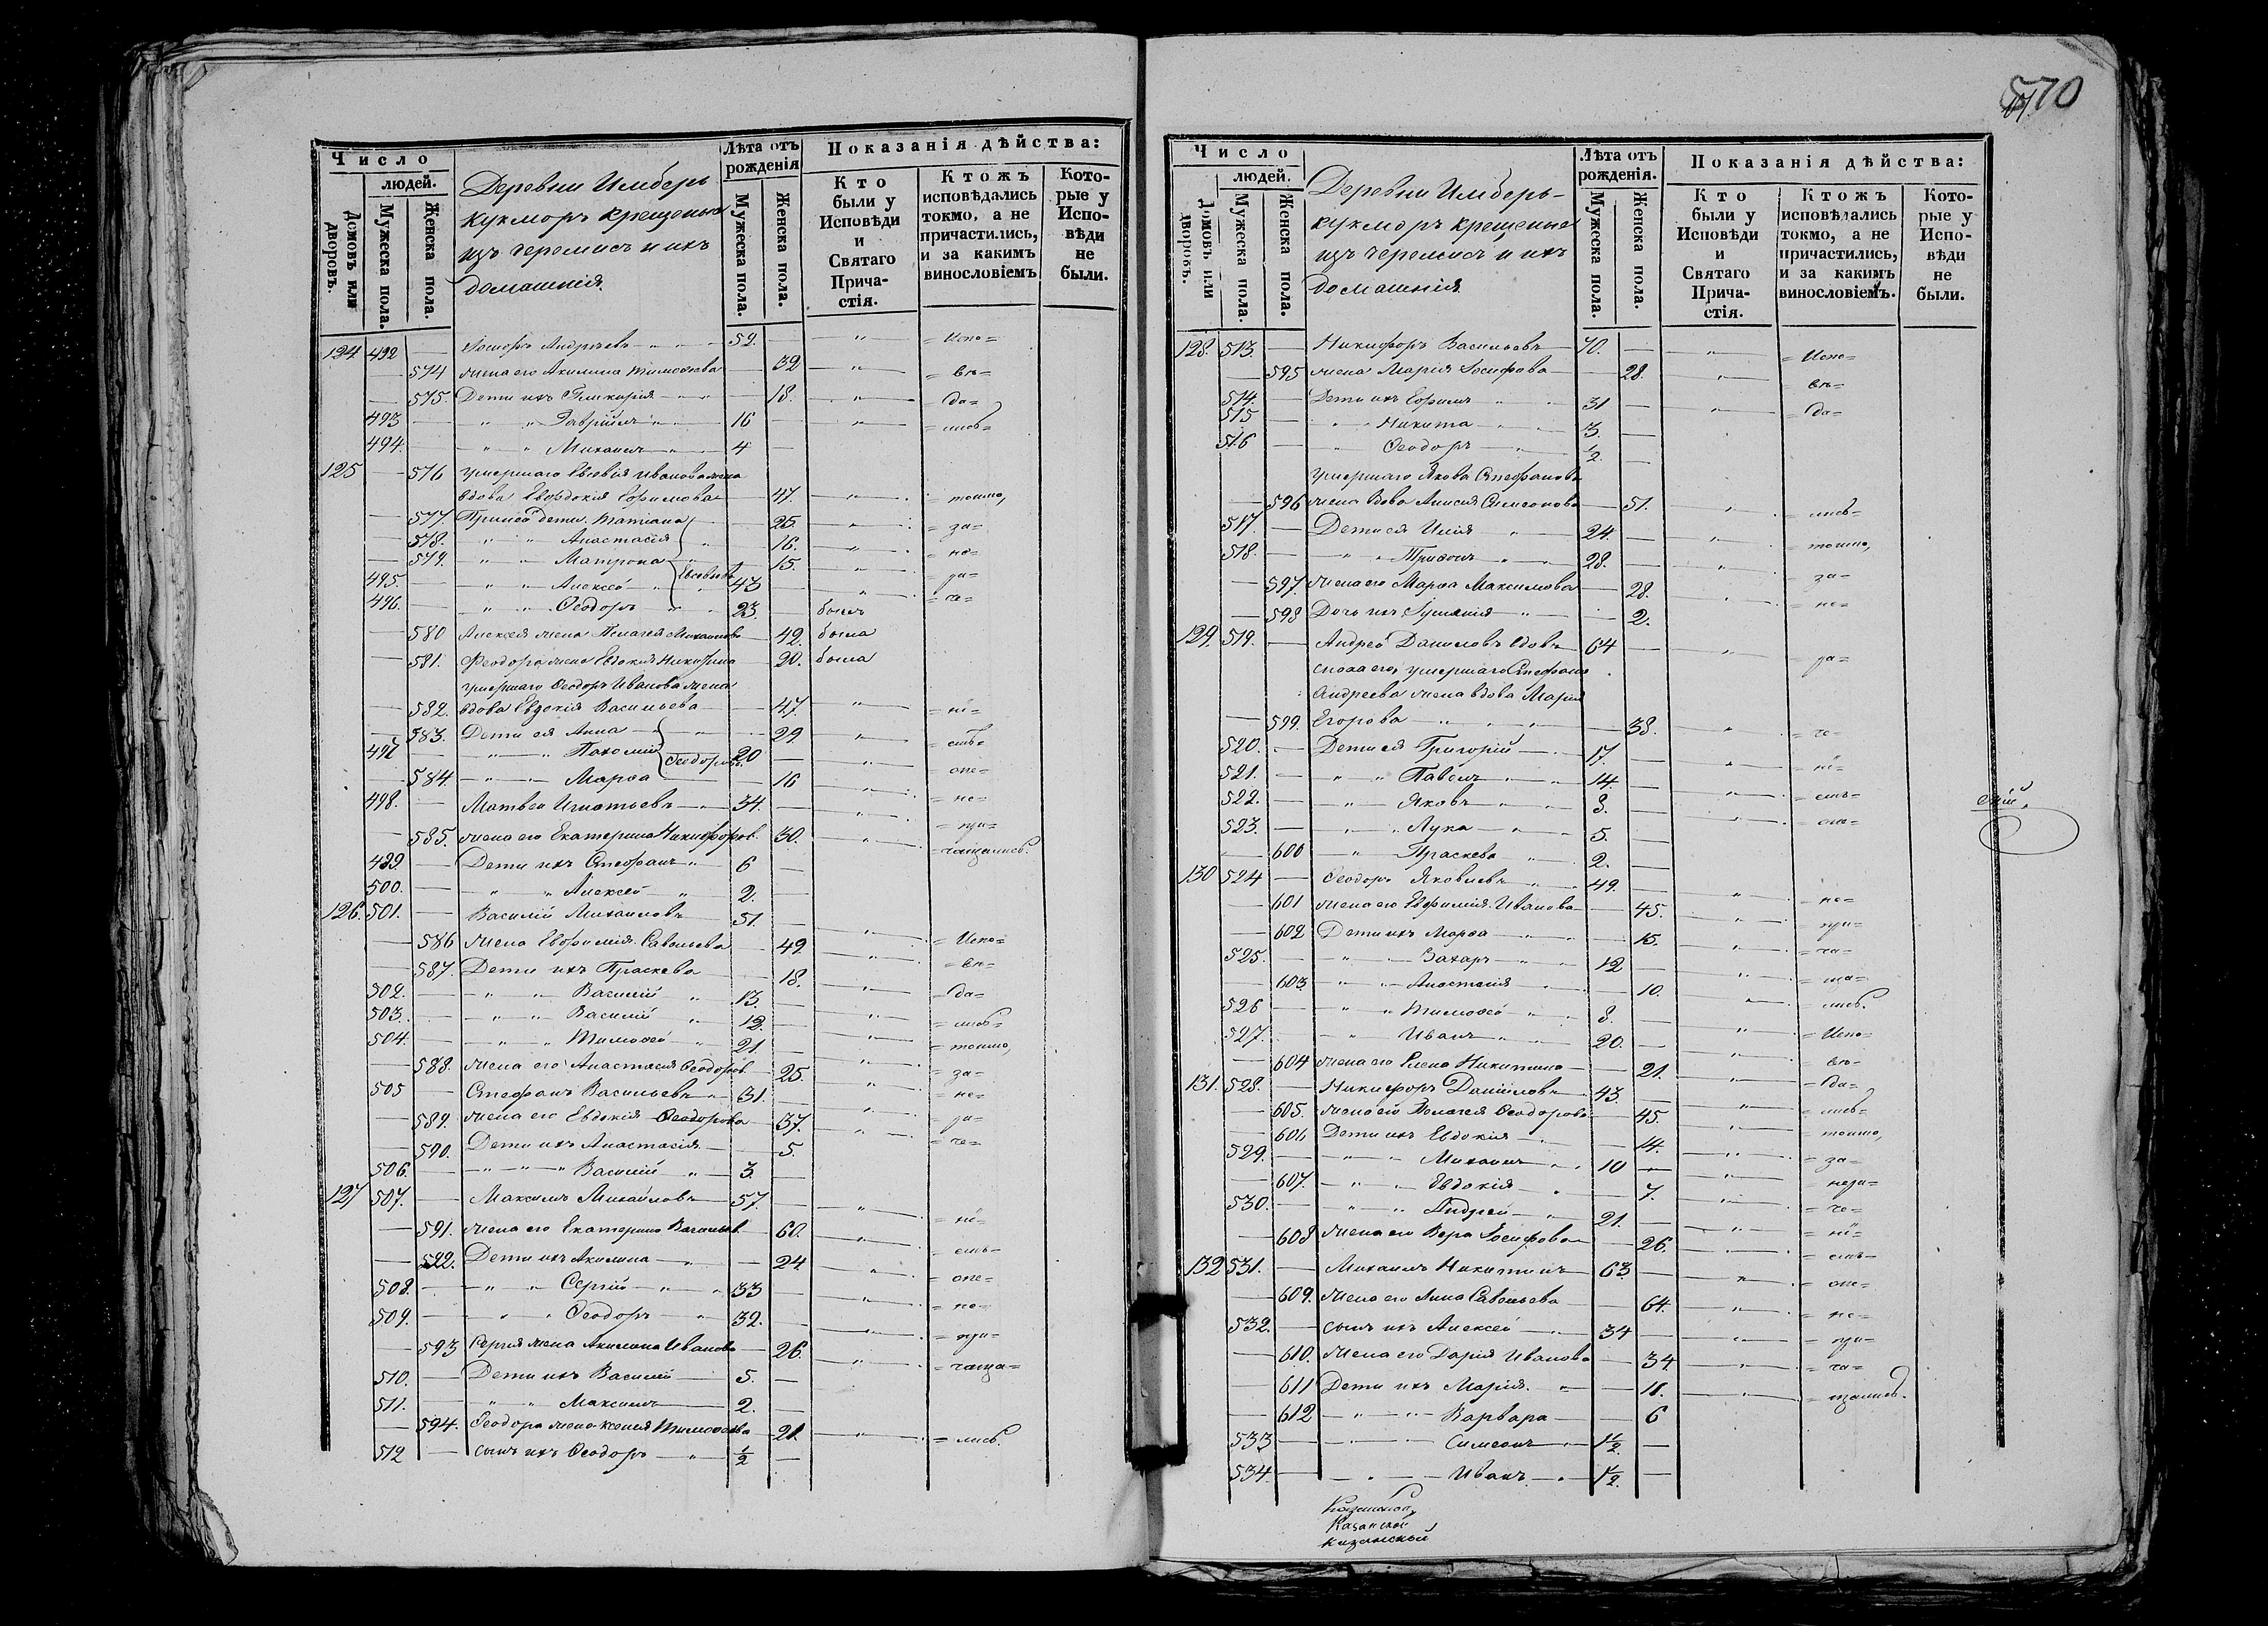 570
Число
людей.
Домовъ или дворовъ.
Мужеска пола.
Женска пола.
Деревни Имберь
кукморъ крещеные
изъ черемисъ и ихъ
домашнія.
Лѣта отъ рожденія
Мужеска пола.
Женска пола.
Показанія дѣйства:
Кто были у Исповѣди и Святаго Прича-стія.
Ктожъ исповѣдались токмо, а не причастились, и за какимъ винословіемъ
Кото-рые у Испо-вѣди не были.
124 492 — Іосифъ Андреевъ 52. — " — = Испо=
— 574 жена его Акилина Тимоѳеева — 32 — " — = вѣ=
— 575. Дети ихъ Гликерія — 18. — " — = да=
493 — " " Гавріилъ 16 — " — = лись=
494. — " " Михаилъ 4 —
125 — 576 умершаго Евсевія Иванова жена
вдова Евдокія Ефимова — 47. — " — = токмо,
— 577. При ней дети. Татіана — 25. — " — = за=
— 578. " " Анастасія — 16. — " — = не=
— 579. " " Матрона — 15. — " — = ра=
495. — " " Алексей Евсевіевы 43 — " — = че=
496. — " " Ѳеодоръ 23. — былъ
— 580 Алексея жена Пелагея Михаилова — 42. была
— 581. Феодора жена Евдокія Никитина — 20. была
умершаго Ѳеодора Иванова жена
— 582. вдова Евдокія Васильева — 47. — " — = ні=
— 583. Дети ея Анна — 29. — " — = емъ=
497 — " " Пахомій Ѳеодоровы 20 — " — опе=
— 584. " " Марѳа — 16 — " — = не=
498. — Матвей Игнатьевъ 34. — " — = при=
— 585. жена его Екатерина Никифоров. 30. — " — = чащались.
499. — Дети ихъ Стефанъ 6 —
500. — " " Алексей 2. —
126. 501. — Василій Михаиловъ 51. — " —
— 586 жена Евфимія Савельева — 49. — " — = Испо=
— 587. Дети ихъ Праскева — 18. — " — = вѣ=
502. — " " Василій 13. — " — = да=
503. — " " Василій 12. — " — = лись=
504. — " " Тимоѳей 21. — " — = токмо,
— 588. жена его Анастасія Ѳеодоров. — 25. — " — = за=
505 — Стефанъ Васильевъ 31. — " — = не=
— 589. жена его Евдокія Ѳеодорова — 37. — " — = ра=
— 590. Дети ихъ Анастасія — 5. — " — = че=
506. — " " Василій 3. —
127 507. — Максимъ Михайловъ 57. — " — = ні=
— 591. жена его Екатерина Васильев. — 60. — " — = емъ=
— 592. Дети ихъ Акилина — 24. — " — = опе=
508. — " " Сергій 33 — " — = не=
509. — " " Ѳеодоръ 32. — " — = при=
— 593 Сергія жена Акилина Иванова — 26. — " — = чаща=
510. — Дети ихъ Василій 5. —
511. — " " Максимъ 2. —
— 594. Ѳеодора жена Ксенія Тимоѳеева — 21. — " — = лись.
512 — сынъ ихъ Ѳеодоръ 1/2 —
Число
людей.
Домовъ или дворовъ.
Мужеска пола.
Женска пола.
Деревни Имберь-
кукморъ крещеные
изъ черемисъ и ихъ
домашнія
Лѣта отъ рожденія.
Мужеска пола.
Женска пола.
Показанія дѣйства:
Кто были у Исповѣди и Святаго Прича-стія.
Ктожъ исповѣдались токмо, а не причастились, и за какимъ винословіемъ.
Кото-рые у Испо-вѣди не были.
128. 513. — Никифоръ Васильевъ 70. — " — = Испо=
— 595 жена Марія Іосифова — 28. — " — = вѣ=
514. — Дети ихъ Ефимъ 31 — " — = да=
515 — " " Никита 3. —
516 — " Ѳеодоръ 1/2. —
умершаго Якова Стефанова
— 596 жена вдова Анисія Симеонова — 51. — " — = лись=
517. — Дети ея Илія 24. — " — = токмо,
518. — " " Трифонъ 28. — " — = за=
— 597. жена его Марѳа Максимова — 28. — " — = не=
— 598 Дочь ихъ Іуліанія — 2.
129. 519. — Андрей Даниловъ вдовъ 64 — " — = ра=
сноха его, умершаго Стефана
Андреева жена вдова Марія
— 599. Егорова — 38. — " — = че=
520. — Дети ея Григорій 17. — " — = ні=
521. — " " Павелъ 14. — " — = емъ=
522. — " Яковъ 8. — " — = опе=
523. — " " Лука 5. —
— 600 " Праскева 2. —
130 524 — Ѳеодоръ Яковлевъ 49. — " — = не=
— 601 жена его Евфимія Иванова — 45. — " — = при=
— 602 Дети ихъ Марѳа — 15. — " — = ча=
525. — " " Захаръ 12 — " — = ща=
— 603 " " Анастасія — 10. — " — лись.
526 — " " Тимоѳей 8. —
527. — " Иванъ 20. — " — = Испо=
— 604 жена его Елена Никитина — 21. — " — = вѣ=
131. 528. — Никифоръ Даниловъ 43. — " — = да=
— 605. жена его Пелагея Ѳеодорова — 45. — " — = лись=
— 606 Дети ихъ Евдокія — 14. — " — = токмо,
529. — " " Михаилъ 10 — " — = за=
— 607. " " Евдокія — 7. — " — = нера=
530. — " " Андрей 21. — " — = че=
— 608 жена его Вера Іосифова — 26. — " — = ні=
132 531. — Михаилъ Никитинъ 63. — " — = емъ=
— 609. жена его Анна Савельева — 64. — " — = опе=
532. — сынъ ихъ Алексей 34 — " — = не=
— 610. жена его Дарія Иванова — 34. — " — = при=
— 611 Дети ихъ Марія. — 11. — " — = ча=
— 612 " " Варвара — 6 = щались.
533 — " " Симеонъ 1 1/2. —
534. — " Иванъ 1/2. —
скій.
Казанской
Казанской